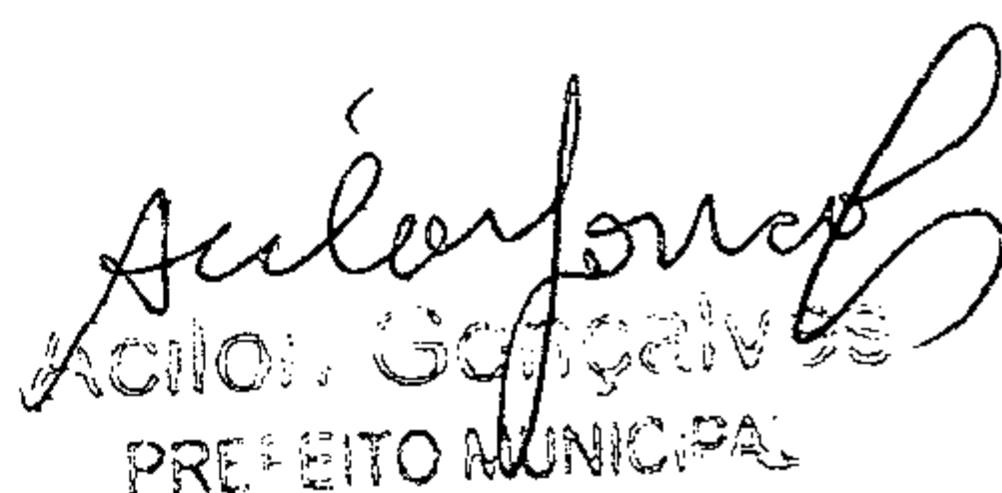 Acilon Gonçalves
PREFEITO MUNICIPAL